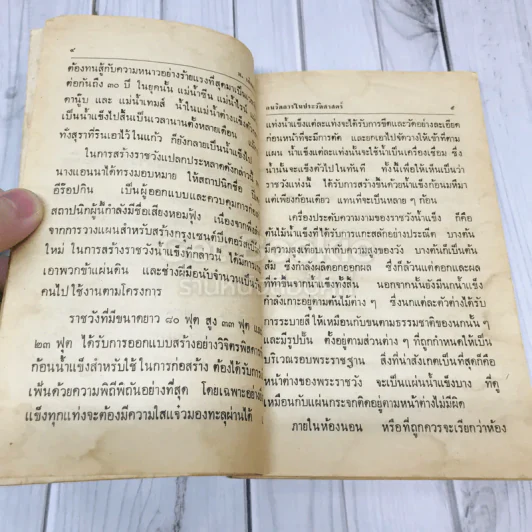 ๔
ต้องทนสู้กับความหนาวอย่างร้ายแรงที่สุดมาเป็น
ต่อกันถึง ๓๐ ปี ในยุคนั้น แม่น้ำซีน แม่น้ำไรน์
ดานูบ และ แม่น้ำเทมส์ น้ำในแม่น้ำต่างแข็งตัว
เป็นน้ำแข็งไปสิ้นเป็นเวลานานตั้งหลายเดือน แม้
ทั้งสุราที่รินเอาไว้ในแก้ว ก็ยังกลายเป็นน้ำแข็งไป
ในการสร้างราชวังแปลกประหลาดดังกล่าวนี้
นางแอนนาได้ทรงมอบหมาย ให้สถาปนิกชื่อ
อีร๊อปกิน เป็นผู้ออกแบบและควบคุมการก่อ
สถาปนิกผู้นี้กำลังมีชื่อเสียงหอมฟุ้ง เนื่องจาก
จากการวางแผนสำหรับสร้างกรุงเซนต์ปีเตอร์
ใหม่ ในการสร้างราชวังน้ำแข็งที่กล่าวนี้ ได้มีการ
เอาพวกข้าแผ่นดิน และช่างฝีมือนับจำนวนเป็น
คนไป ใช้งานตามโครงการ
ราชวังที่มีขนาดยาว ๘๐ ฟุต สูง ๓๓ ฟุต
๒๓ ฟุต ได้รับการออกแบบสร้างอย่างวิจิตรพิสดาร
ก้อนน้ำแข็งสำหรับใช้ในการก่อสร้าง ต้องได้รับการ
เฟ้นด้วยความพิถีพิถันอย่างที่สุด โดยเฉพาะอย่างยิ่ง
แข็งทุกแท่งจะต้องมีความใสแจ๋วมองทะลุผ่านได้
คนวิตถารในประวัติศาสตร์ ๕
แท่งน้ำแข็งแต่ละแท่งจะได้รับการขีดและวัดอย่างละเอียด
ก่อนหน้าที่จะมีการตัด และยกเอาไปจัดวางให้เข้าที่ตาม
แผน น้ำแข็งแต่ละแท่งนั้นจะใช้น้ำเป็นเครื่องเชื่อม ซึ่ง
น้ำนั้นจะแข็งตัวไปในทันที ทั้งนี้เพื่อให้เห็นเป็นว่า
ราชวังแห่งนี้ ได้รับการสร้างขึ้นด้วยน้ำแข็งก้อนมหึมา
แต่เพียงก้อนเดียว แทนที่จะเป็นหลาย ๆ ก้อน
เครื่องประดับความงามของราชวังน้ำแข็ง ก็คือ
ต้นไม้น้ำแข็งที่ได้รับการแกะสลักอย่างประณีต บางต้น
มีความสูงเทียบเท่ากับความสูงของวัง บางต้นก็เป็นต้น
ส้ม ซึ่งกำลังผลิดอกออกผล ซึ่งก็ล้วนแต่ดอกและผล
ที่ทำขึ้นจากน้ำแข็งทั้งสิ้น นอกจากนั้นยังมีนกน้ำแข็ง
กำลังเกาะอยู่ตามต้นไม้ต่าง ๆ ซึ่งนกแต่ละตัวต่างได้รับ
การระบายสี ให้เหมือนกับขนตามธรรมชาติของนกนั้น ๆ
และมีรูปปั้น ตั้งอยู่ตามส่วนต่าง ๆ ที่ถูกกำหนดให้เป็น
บริเวณรอบพระราชฐาน สิ่งที่น่าสังเกตเป็นที่สุดก็คือ
หน้าต่างของพระราชวัง จะเป็นแผ่นน้ำแข็งบาง ที่ดู
เหมือนกับแผ่นกระจกติดอยู่ตามหน้าต่างไม่มีผิด
ภายในห้องนอน หรือที่ถูกควรจะเรียกว่าห้อง